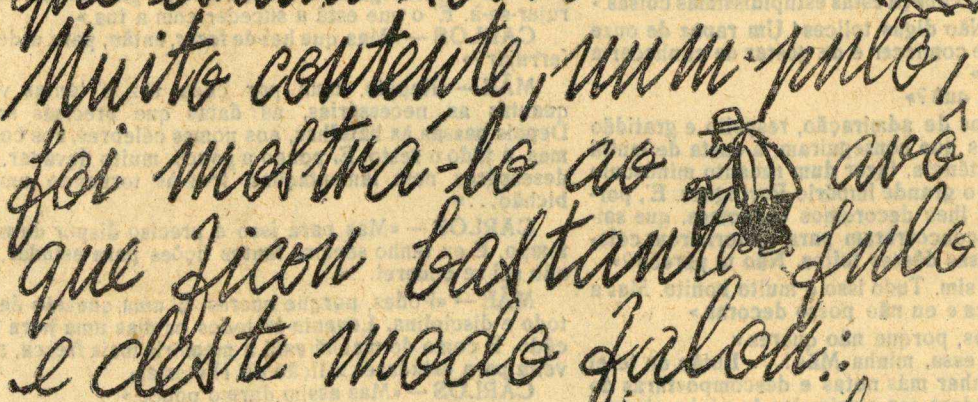 Muito contente, num pulo,
foi mostrá-lo ao avô
que ficou bastante fulo
e deste modo falou: